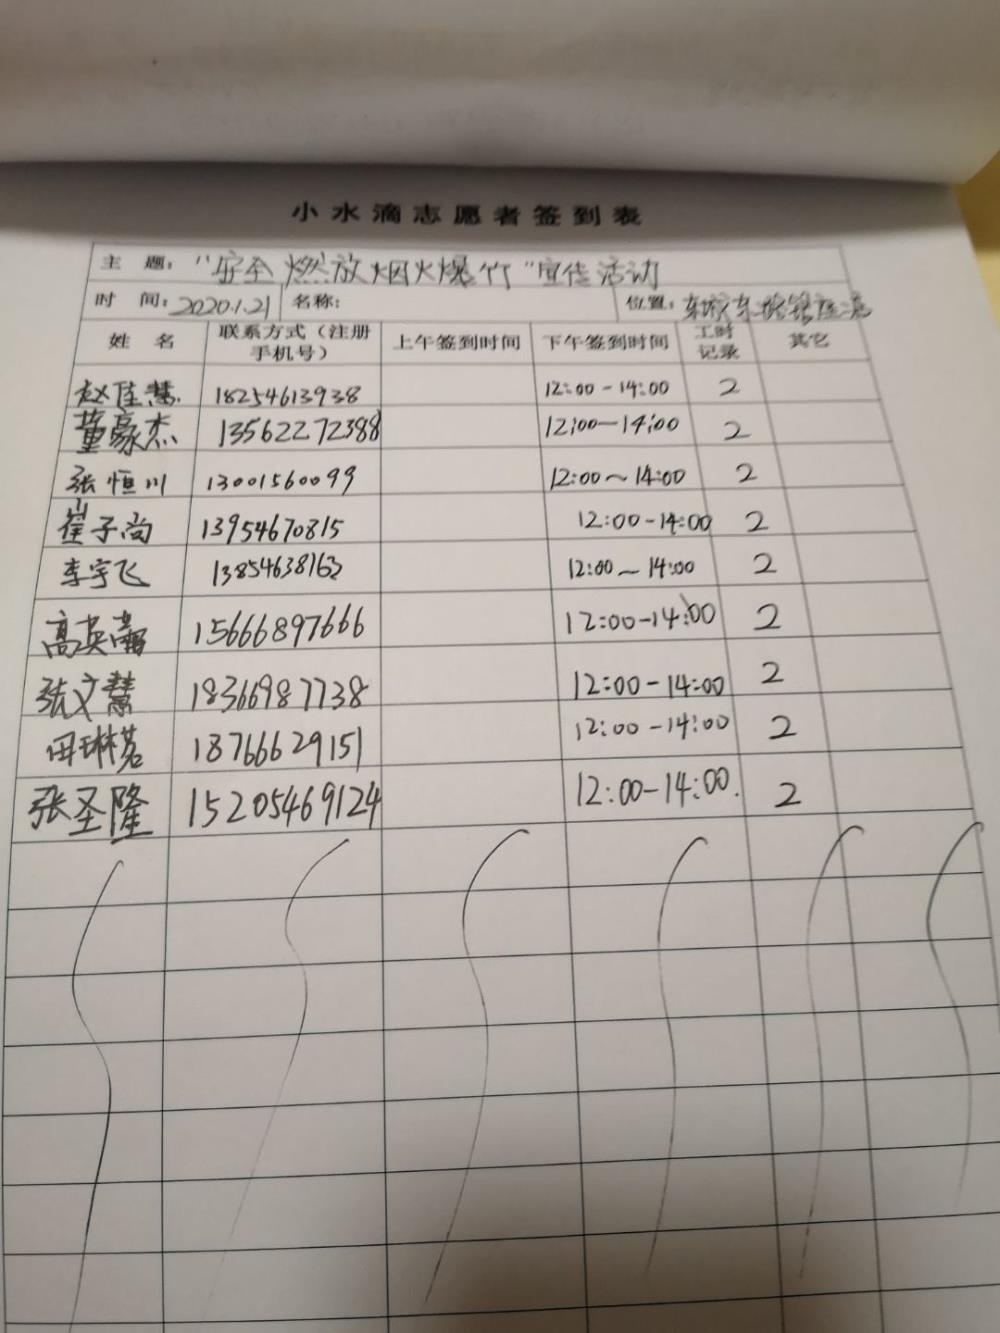 小水滴志愿者签到表
主 题: "安全燃放烟火爆竹"宣传活动
时 间: 2020.1.21 名称: 位置:
姓 名 联系方式（注册手机号） 上午签到时间 下午签到时间 工时记录 其它
赵佳慧 18254613938 12:00-14:00 2
董豪杰 13562272388 12:00-14:00 2
张恒川 13001560099 12:00~14:00 2
崔子尚 13954670815 12:00-14:00 2
李宇飞 13854638163 12:00~14:00 2
高英 15666897666 12:00-14:00 2
张文慧 18366987738 12:00-14:00 2
田琳茗 18766629151 12:00-14:00 2
张圣隆 15205469124 12:00-14:00. 2